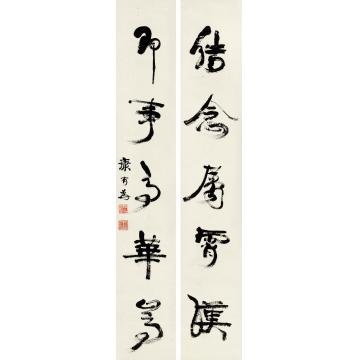 結念屬霄漢
即事高華嵩
康有為